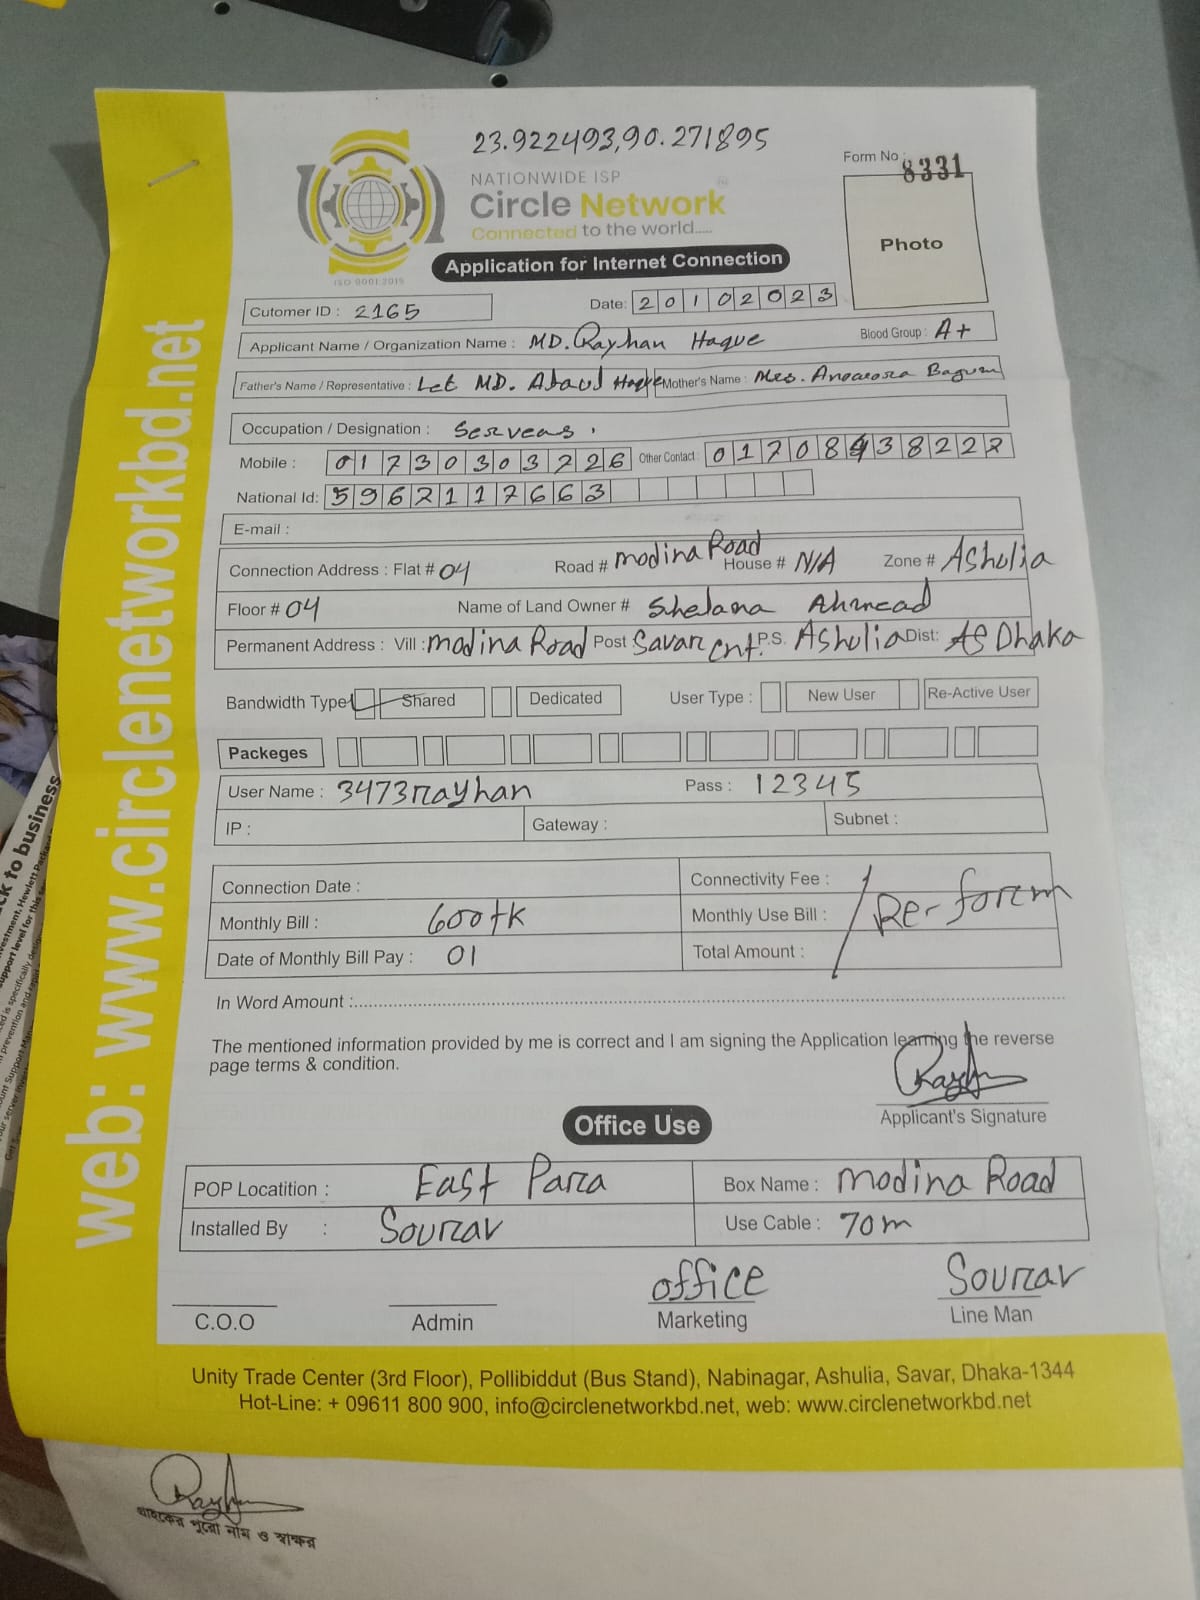 23.922493,90.271895
NATIONWIDE ISP
Circle Network
Connected to the world.....
ISO 9001:2015
Form No : 8331
Photo
Application for Internet Connection
Cutomer ID : 2165 Date: 20102023
Applicant Name / Organization Name : MD. Rayhan Haque Blood Group : A+
Father's Name / Representative : Let MD. Ataul Haque Mother's Name : Mrs. Anowora Bagum
Occupation / Designation : Serveas.
Mobile : 01730303726 Other Contact : 01708438227
National Id: 5962117663
E-mail :
Connection Address : Flat # 04 Road # modina Road House # N/A Zone # Ashulia
Floor # 04 Name of Land Owner # Shelana Ahmead
Permanent Address : Vill : modina Road Post Savar Cnt. P.S. Ashulia Dist: Dhaka
Bandwidth Type Shared Dedicated User Type : New User Re-Active User
Packeges
User Name : 3473rayhan Pass : 12345
IP : Gateway : Subnet :
Connection Date : Connectivity Fee :
Monthly Bill : 600tk Monthly Use Bill : Re-forem
Date of Monthly Bill Pay : 01 Total Amount :
In Word Amount :
The mentioned information provided by me is correct and I am signing the Application learning the reverse
page terms & condition.
Rayhan
Applicant's Signature
Office Use
POP Locatition : East Para Box Name : modina Road
Installed By : Sourav Use Cable : 70m
office Sourav
C.O.O Admin Marketing Line Man
Unity Trade Center (3rd Floor), Pollibiddut (Bus Stand), Nabinagar, Ashulia, Savar, Dhaka-1344
Hot-Line: + 09611 800 900, info@circlenetworkbd.net, web: www.circlenetworkbd.net
web: www.circlenetworkbd.net
Rayhan
গ্রাহকের পুরো নাম ও স্বাক্ষর